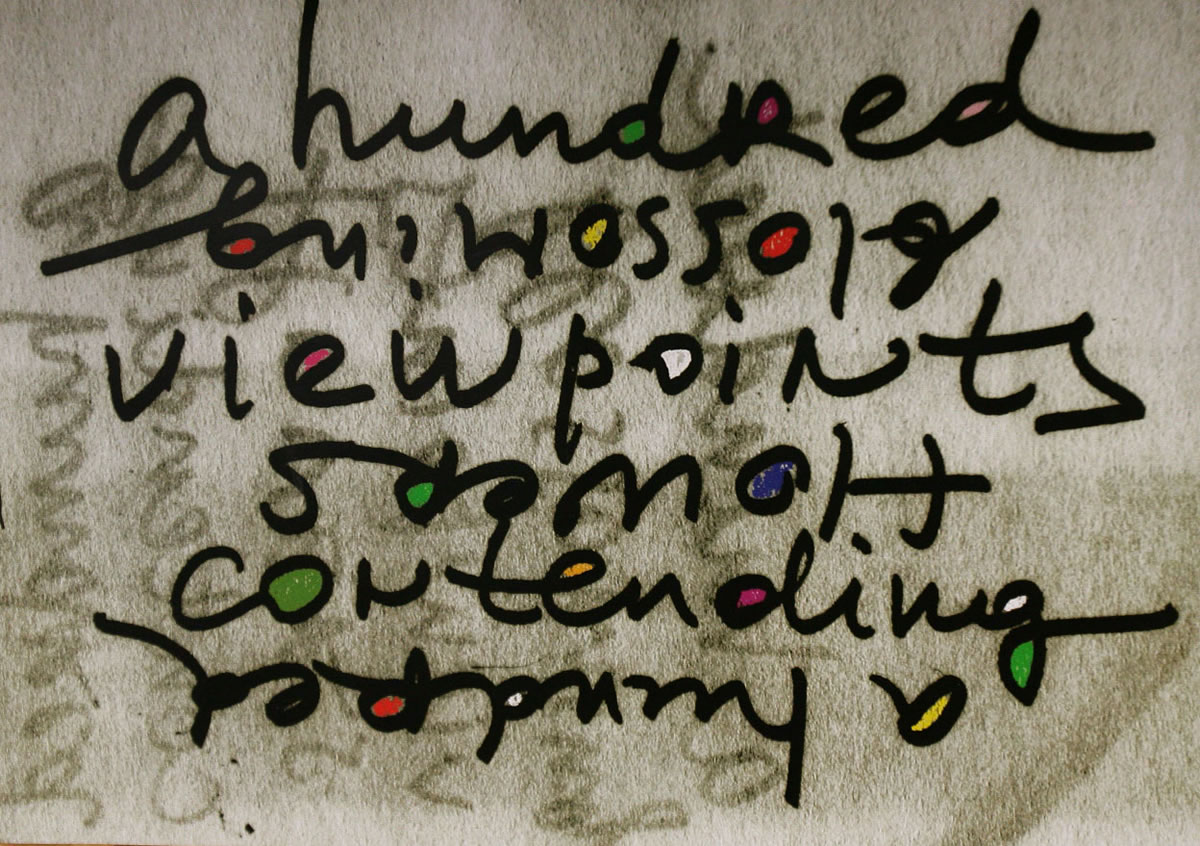 a hundred
viewpoints
contending
a hundred
flowers
blossoming